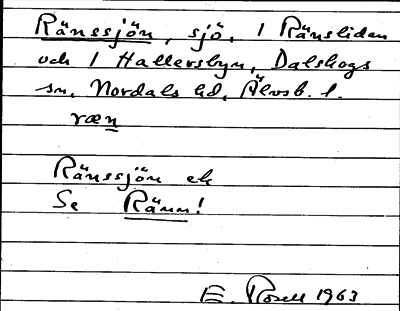 Ränssjön, sjö, 1 Ränsliden
och 1 Hallersbyn, Dalskogs
sn, Nordals hd, Älvsb. l.
ræn
Ränssjön ek
Se Ränn!
E. Rosell 1963